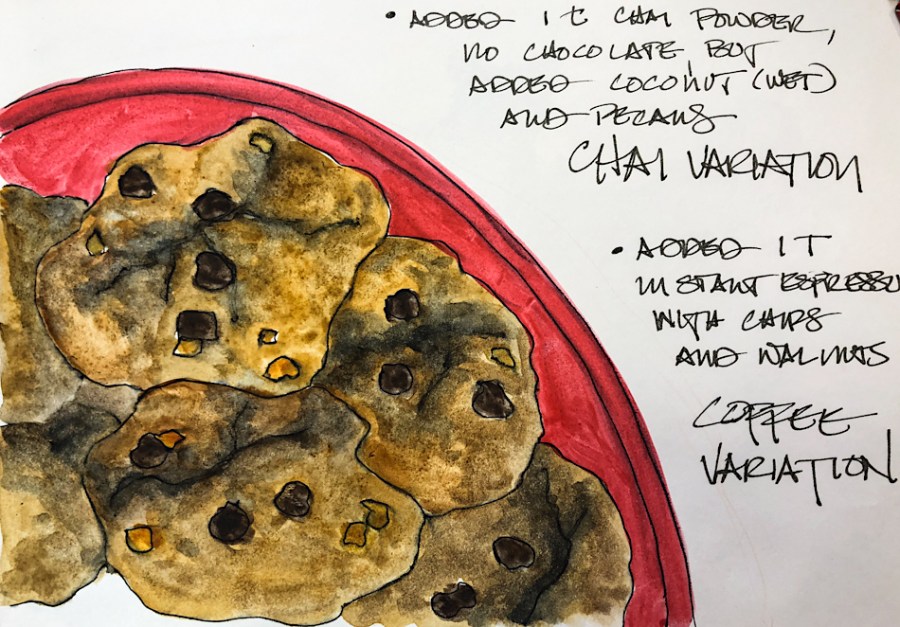 • ADDED 1 t CHAI POWDER,
NO CHOCOLATE, BUT
ADDED COCONUT (WET)
AND PECANS
CHAI VARIATION
• ADDED 1 T
INSTANT ESPRESSO
WITH CHIPS
AND WALNUTS
COFFEE
VARIATION